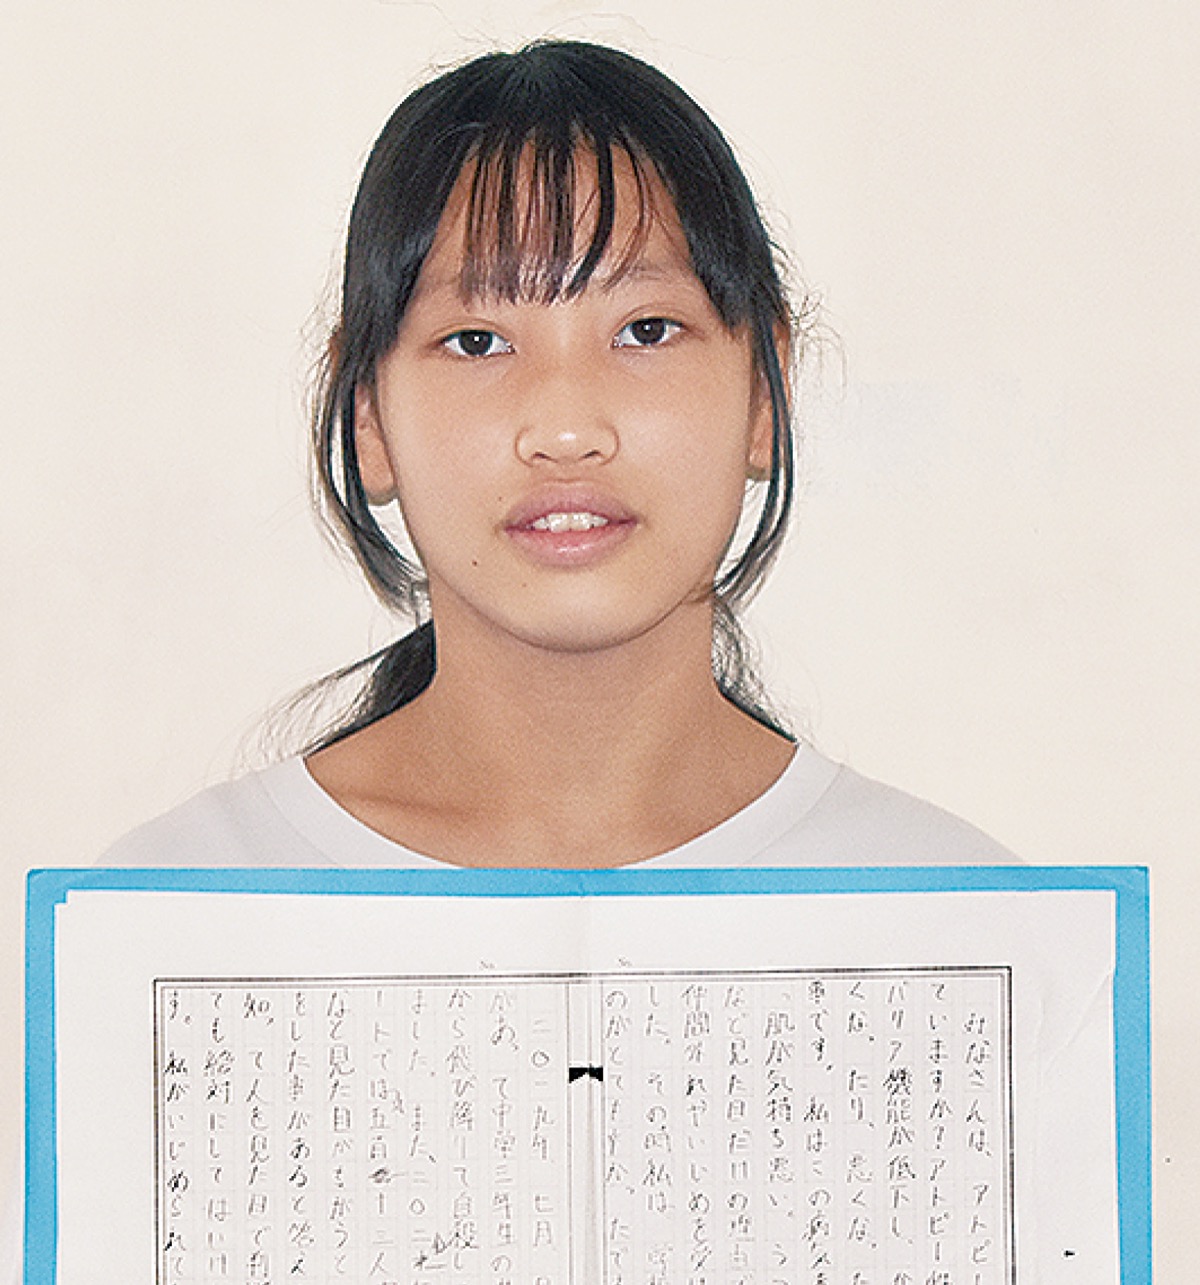 みなさんは、アトピー
ていますか？アトピー性
バリア機能が低下し、か
くな。たり、悪くな。た
事です。私はこの病気を
。肌が気持ち悪い。うつ
など見た目だけの理由で
仲間外れやいじめを受け
した。その時私は、
のがとてもすか。たで
二〇一九年、七月、
があ。て中学三年生の
から飛び降りて自殺し
ました。また、二〇二
ートでは五百十三人
など見た目がちがうと
をした事があると答え
知。て人を見た目で判
ても絶対にしてはいけ
す。私がいじめられて